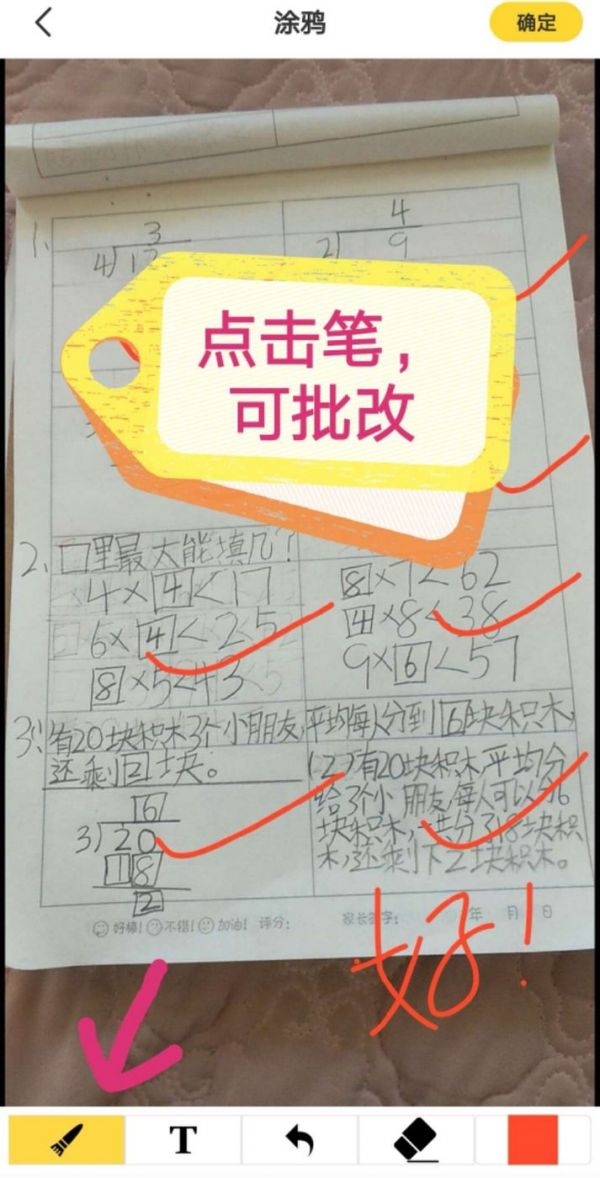 涂鸦
确定
1.
3
4
4
2
9
点击笔，
可批改
2、□里最大能填几？
4×4<17
8×7<62
6×4<25
4×8<38
8×5<43
9×6<57
3、有20块积木3个小朋友,平均每人分到6块积木,
还剩2块。
(2)有20块积木,平均分
给3个小朋友,每人可以分6
块积木,一共分了18块积
木,还剩下2块积木。
6
3)20
18
2
好棒! 不错! 加油! 评分: 家长签字: 年 月 日
好!
T